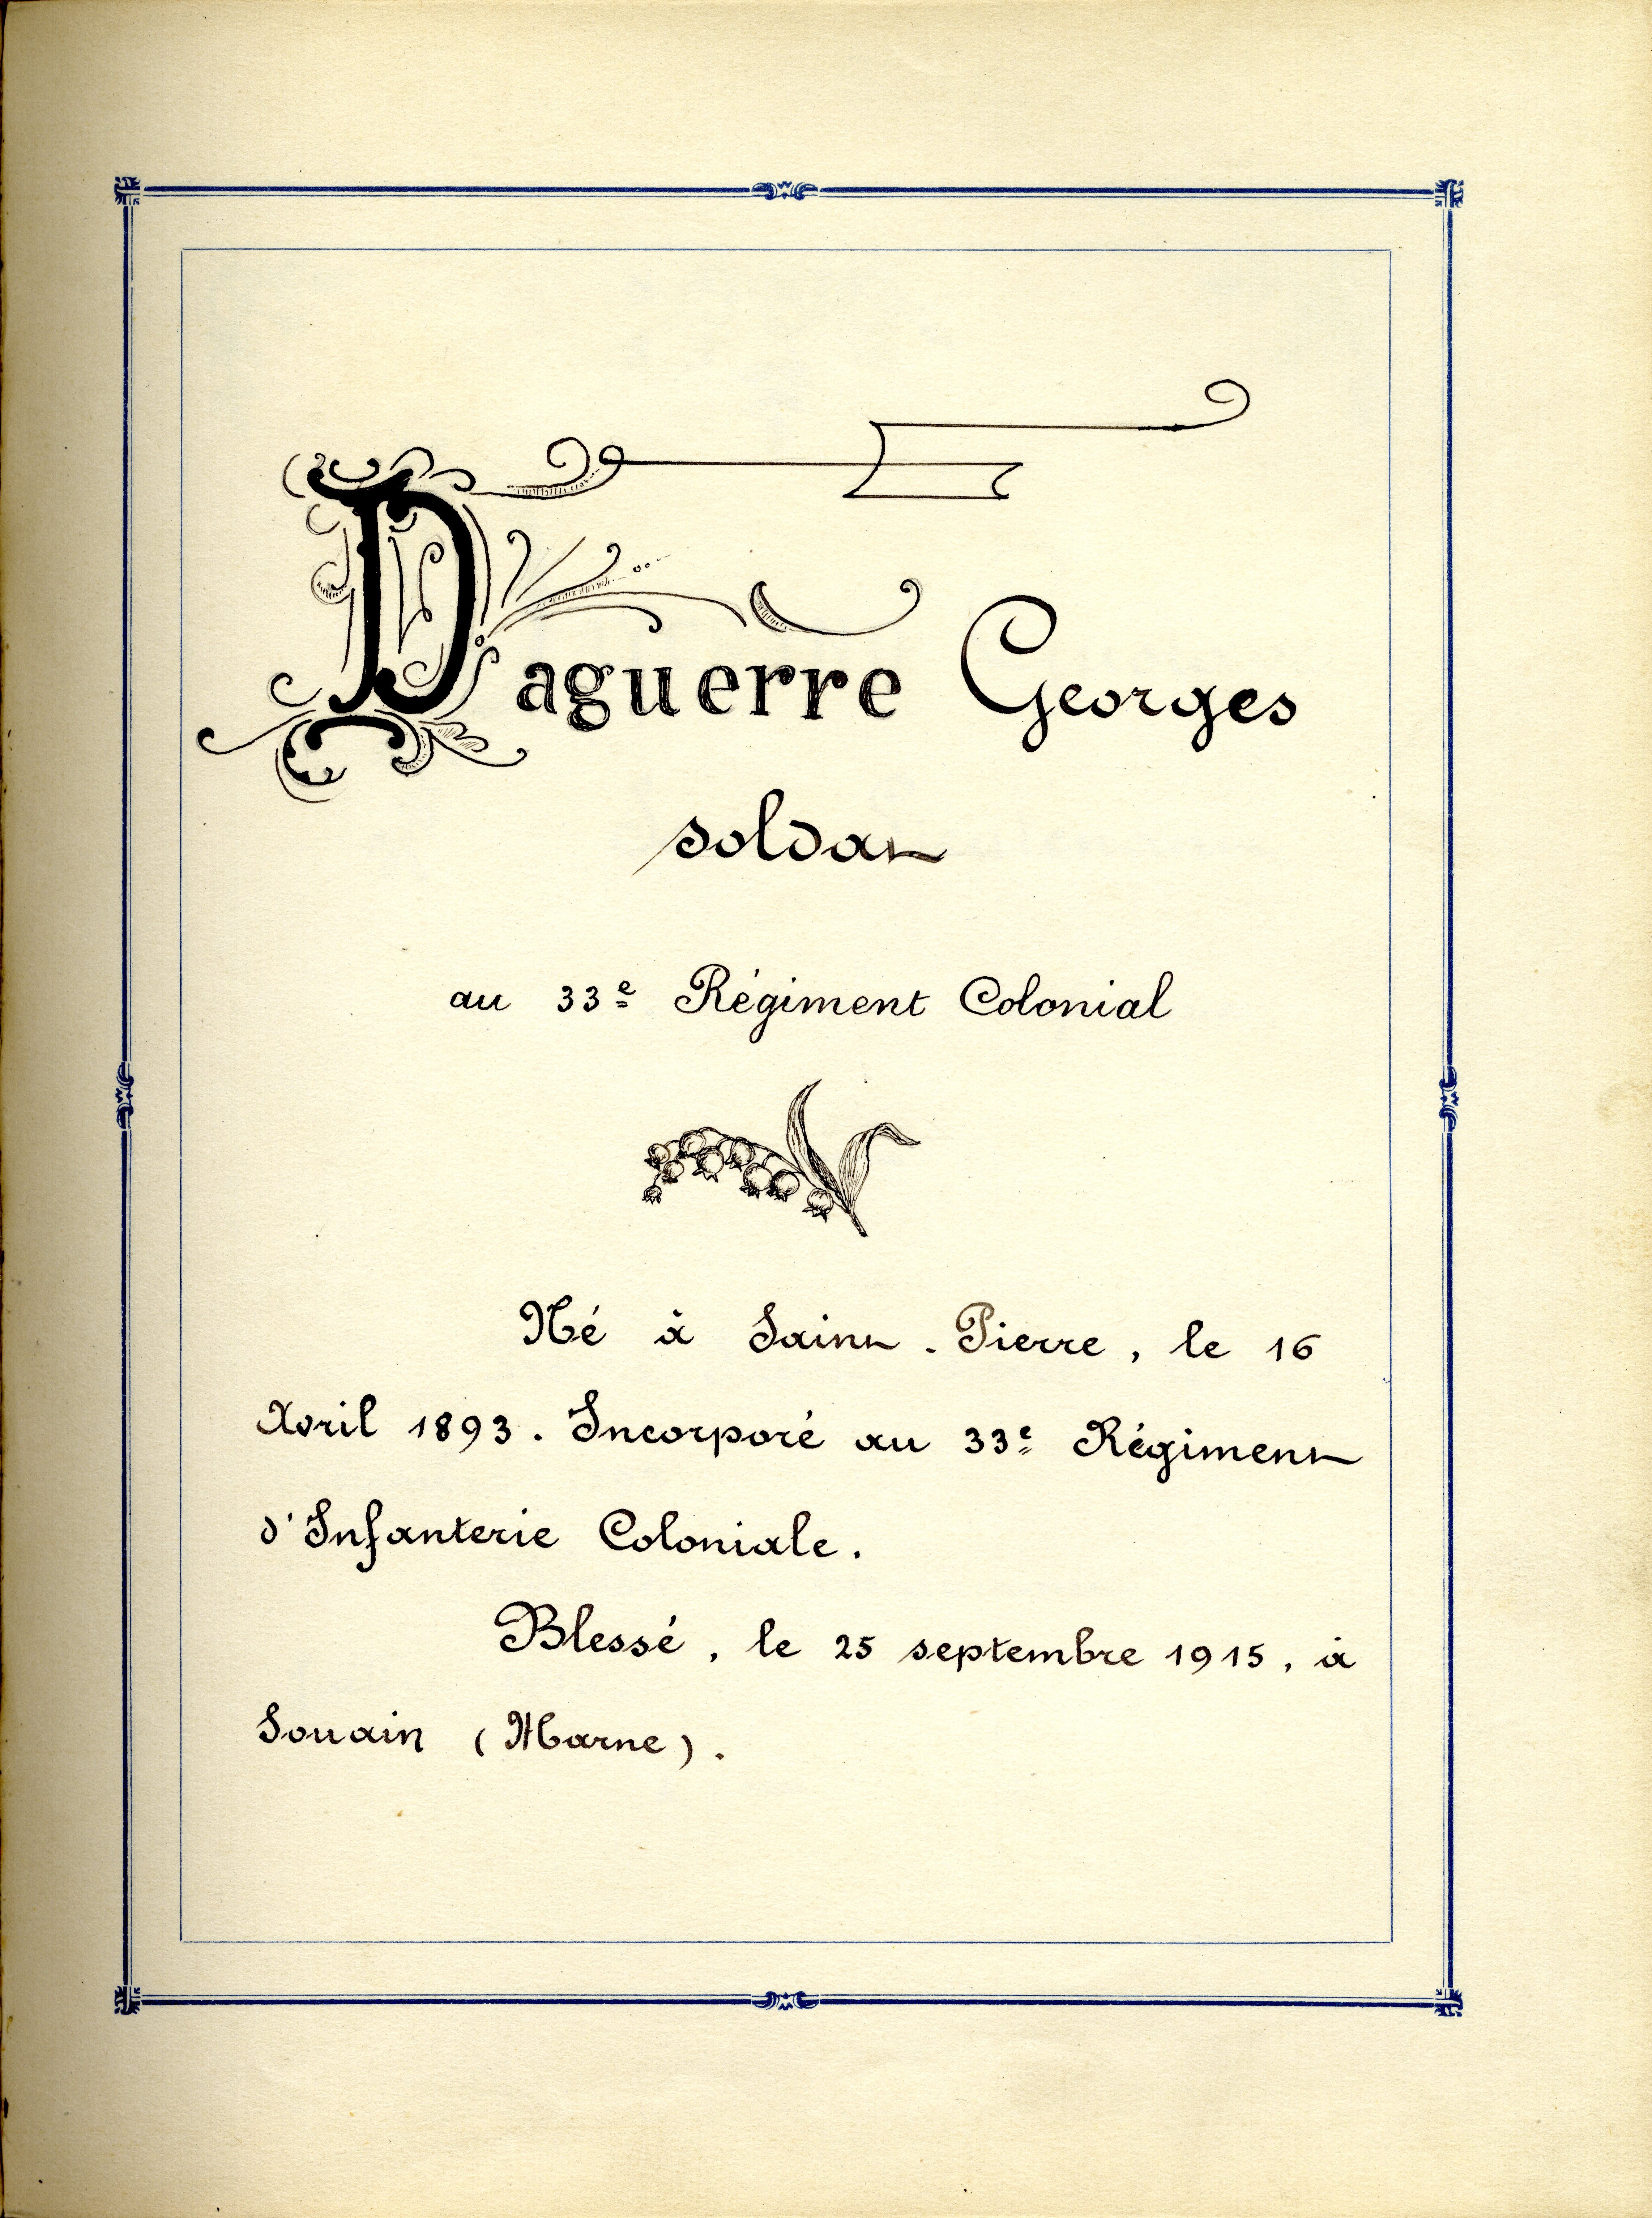 Daguerre Georges
soldat
au 33e Régiment Colonial
Né à Saint-Pierre, le 16
Avril 1893. Incorporé au 33e Régiment
d'Infanterie Coloniale.
Blessé, le 25 septembre 1915, à
Souain (Marne).